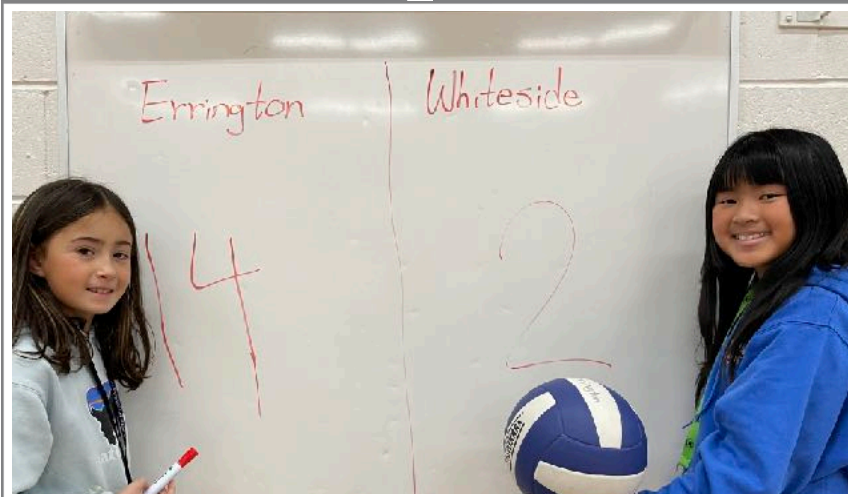 Errington Whiteside
14 2